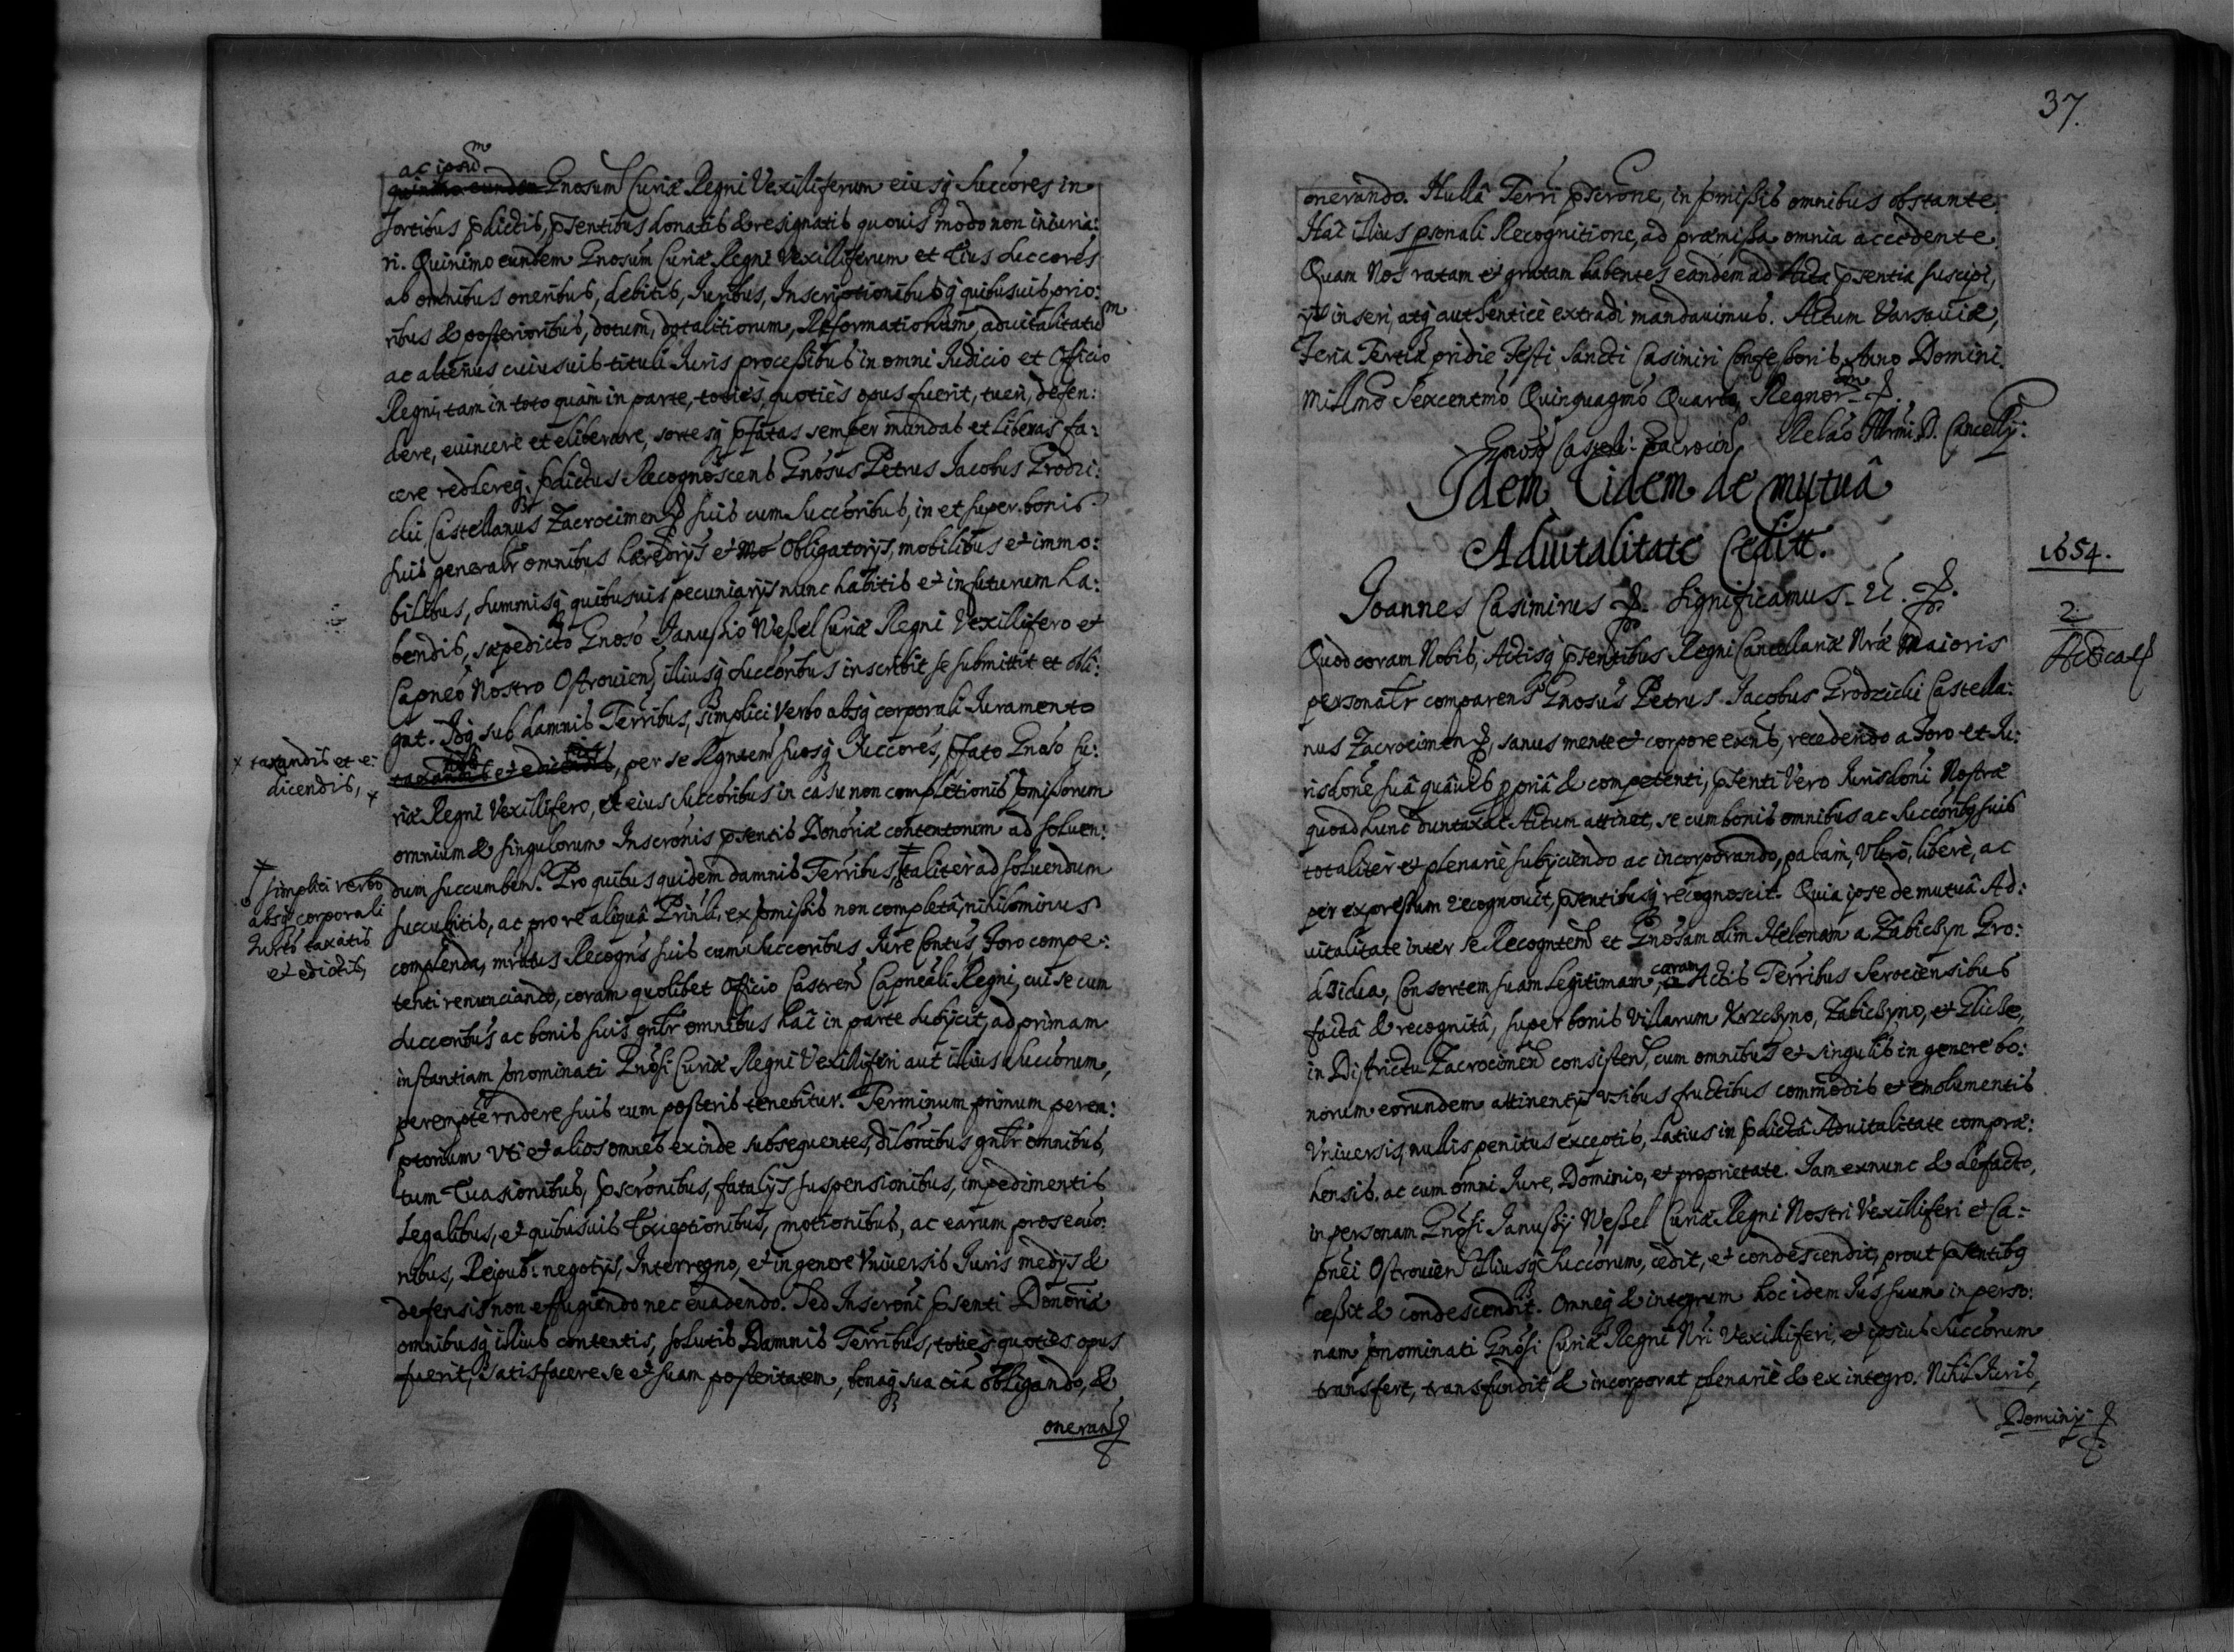 ac ipsum
Gnosum Curiæ Regni Vexilliferum eiusq Succores in
sortibus pdictis, psentibus donatis & resignatis quovis modo non iniuria:
ri. Quinimo eundem Gnosum Curiæ Regni Vexilliferum et Eius Succores
ab omnibus oneribus, debitis, Iuribus, Inscriptionibusq quibusvis prio:
ribus & posterioribus, dotum, dotalitiorum, Reformationum, advitalitatum
ac alterius cuiusvis tituli Iuris processibus in omni Iudicio et Officio
Regni, tam in toto quàm in parte, toties, quoties opus fuerit, tueri, defen:
dere, evincere et eliberare, sortesq pfatas semper mundas et liberas fa:
cere reddereq. pdictus Recognoscens Gnosus Petrus Iacobus Grodzi:
cki Castellanus Zacrocimen suis cum Succoribus, in et super bonis
suis generalr omnibus hæredrys et Obligatorys, mobilibus et immo:
bilibus, summisq quibusvis pecuniarys nunc habitis et in futurum ha:
bendis, sæpedicto Gnoso Janussio Wessel Curiæ Regni Vexillifero et
Capneo Nostro Ostrovien, illiusq Succoribus inscribit se submittit et obli:
gat. Idq sub damnis Terribus, simplici Verbo absq corporali Iuramento
taxandis et edicendis, per se Rgntem suosq Succores, pfato Gnoso Cu:
riæ Regni Vexillifero, et eius Succoribus in casu non completionis pmissorum
omnium & singulorum Inscronis psentis Donoriæ contentorum ad solven:
dum succumben. Pro quibus quidem damnis Terribus, taliter ad solvendum
succubitis, ac pro re aliquâ Prinli, ex pmissis non completâ, nihilominus
complenda, mratus Recogns suis cum Succoribus Iure Contus Foro compe:
tenti renunciando, coram quolibet Officio Castren Capneali Regni, cui se cum
Succoribus ac bonis suis gnlr omnibus hac in parte subycit, ad primam
instantiam pnominati Gnosi Curiæ Regni Vexilliferi aut illius Succorum,
perempte rndere suis cum posteris tenebitur. Terminum primum perem:
ptorium uti et alios omnes exinde subsequentes, dilonibus gnlr omnibus,
tum Evasionibus, pscronibus, fatalys suspensionibus, impedimentis
Legalibus, et quibusvis Exceptionibus, motionibus, ac earum proseauo:
nibus, Reipub: negotys, Interregno, et in genere Vniversis Iuris medys &
defensis non effugiendo nec evadendo. Sed Inscroni psenti Donoriæ
omnibusq illius contentis, solutis Damnis Terribus, toties quoties opus
fuerit, satisfacere se et suam posteritatem, bonaq sua oia obligando, &
oneran
× taxandis et e:
dicendis, ×
simplici verbo
absq corporali
Iurto taxatis
et edictis,
37.
onerando. Nullâ Terri pscrone, in pmissis omnibus obstante.
Hac illius psonali Recognitione, ad præmissa omnia accedente
Quam Nos ratam et gratam habentes eandem ad Acta psentia suscipi,
ys inseri, atq authenticè extradi mandavimus. Actum Varsaviæ,
Feria Tertia pridie Festi Sancti Casimiri Confessoris Anno Domini
Millmo Sexcentmo Quinquagmo Quarto, Regnorum
Gnoso Castell: Zacrocim Relao Illrmi D. Cancelly:
Idem Eidem de mutuâ
Advitalitate Cedit.
1654.
2
Joannes Casimirus Significamus
Quod coram Nobis, Actisq psentibus Regni Cancellariæ Nræ Maioris
personalr comparens Gnosus Petrus Iacobus Grodzicki Castella:
nus Zacrocimen, sanus mente et corpore exns, recedendo a Foro et Iu:
risdone suâ quâvis ppriâ & competenti, psenti vero Iurisdoni Nostræ
quoad hunc duntaxat Actum attinet, se cum bonis omnibus ac Succoribq suis
totaliter et plenariè subyciendo ac incorporando, palam, Vltrò, liberè, ac
per expressum recognovit, psentibusq recognoscit. Quia ipse de mutuâ Ad:
vitalitate inter se Recogntem et Gnosam olim Helenam a Zabiczyn Gro:
dzicka, Consortem suam legitimam, coram Actis Terribus Serociensibus
factâ & recognitâ, super bonis Villarum Krzczyno, Zabiczyno, et
in Districtu Zacrocimen consisten, cum omnibus et singulis in genere bo:
norum eorundem attinentys usibus fructibus commodis et emolumentis
Vniversis, nullis penitus exceptis, latius in pdictâ Advitalitate compræ:
hensis. ac cum omni Iure, Dominio, et proprietate. Iam exnunc & defacto,
in personam Gnosi Janussy Wessel Curiæ Regni Nostri Vexilliferi et Ca:
pnei Ostrovien illiusq Succorum, cedit, et condescendit, prout psentibq
cessit & condescendit. Omneq & integrum hoc idem Ius suum in perso:
nam pnominati Gnosi Curiæ Regni Nri Vexilliferi, et ipsius Succorum
transfert, transfundit & incorporat plenariè & ex integro. Nihil Iuris,
Dominy